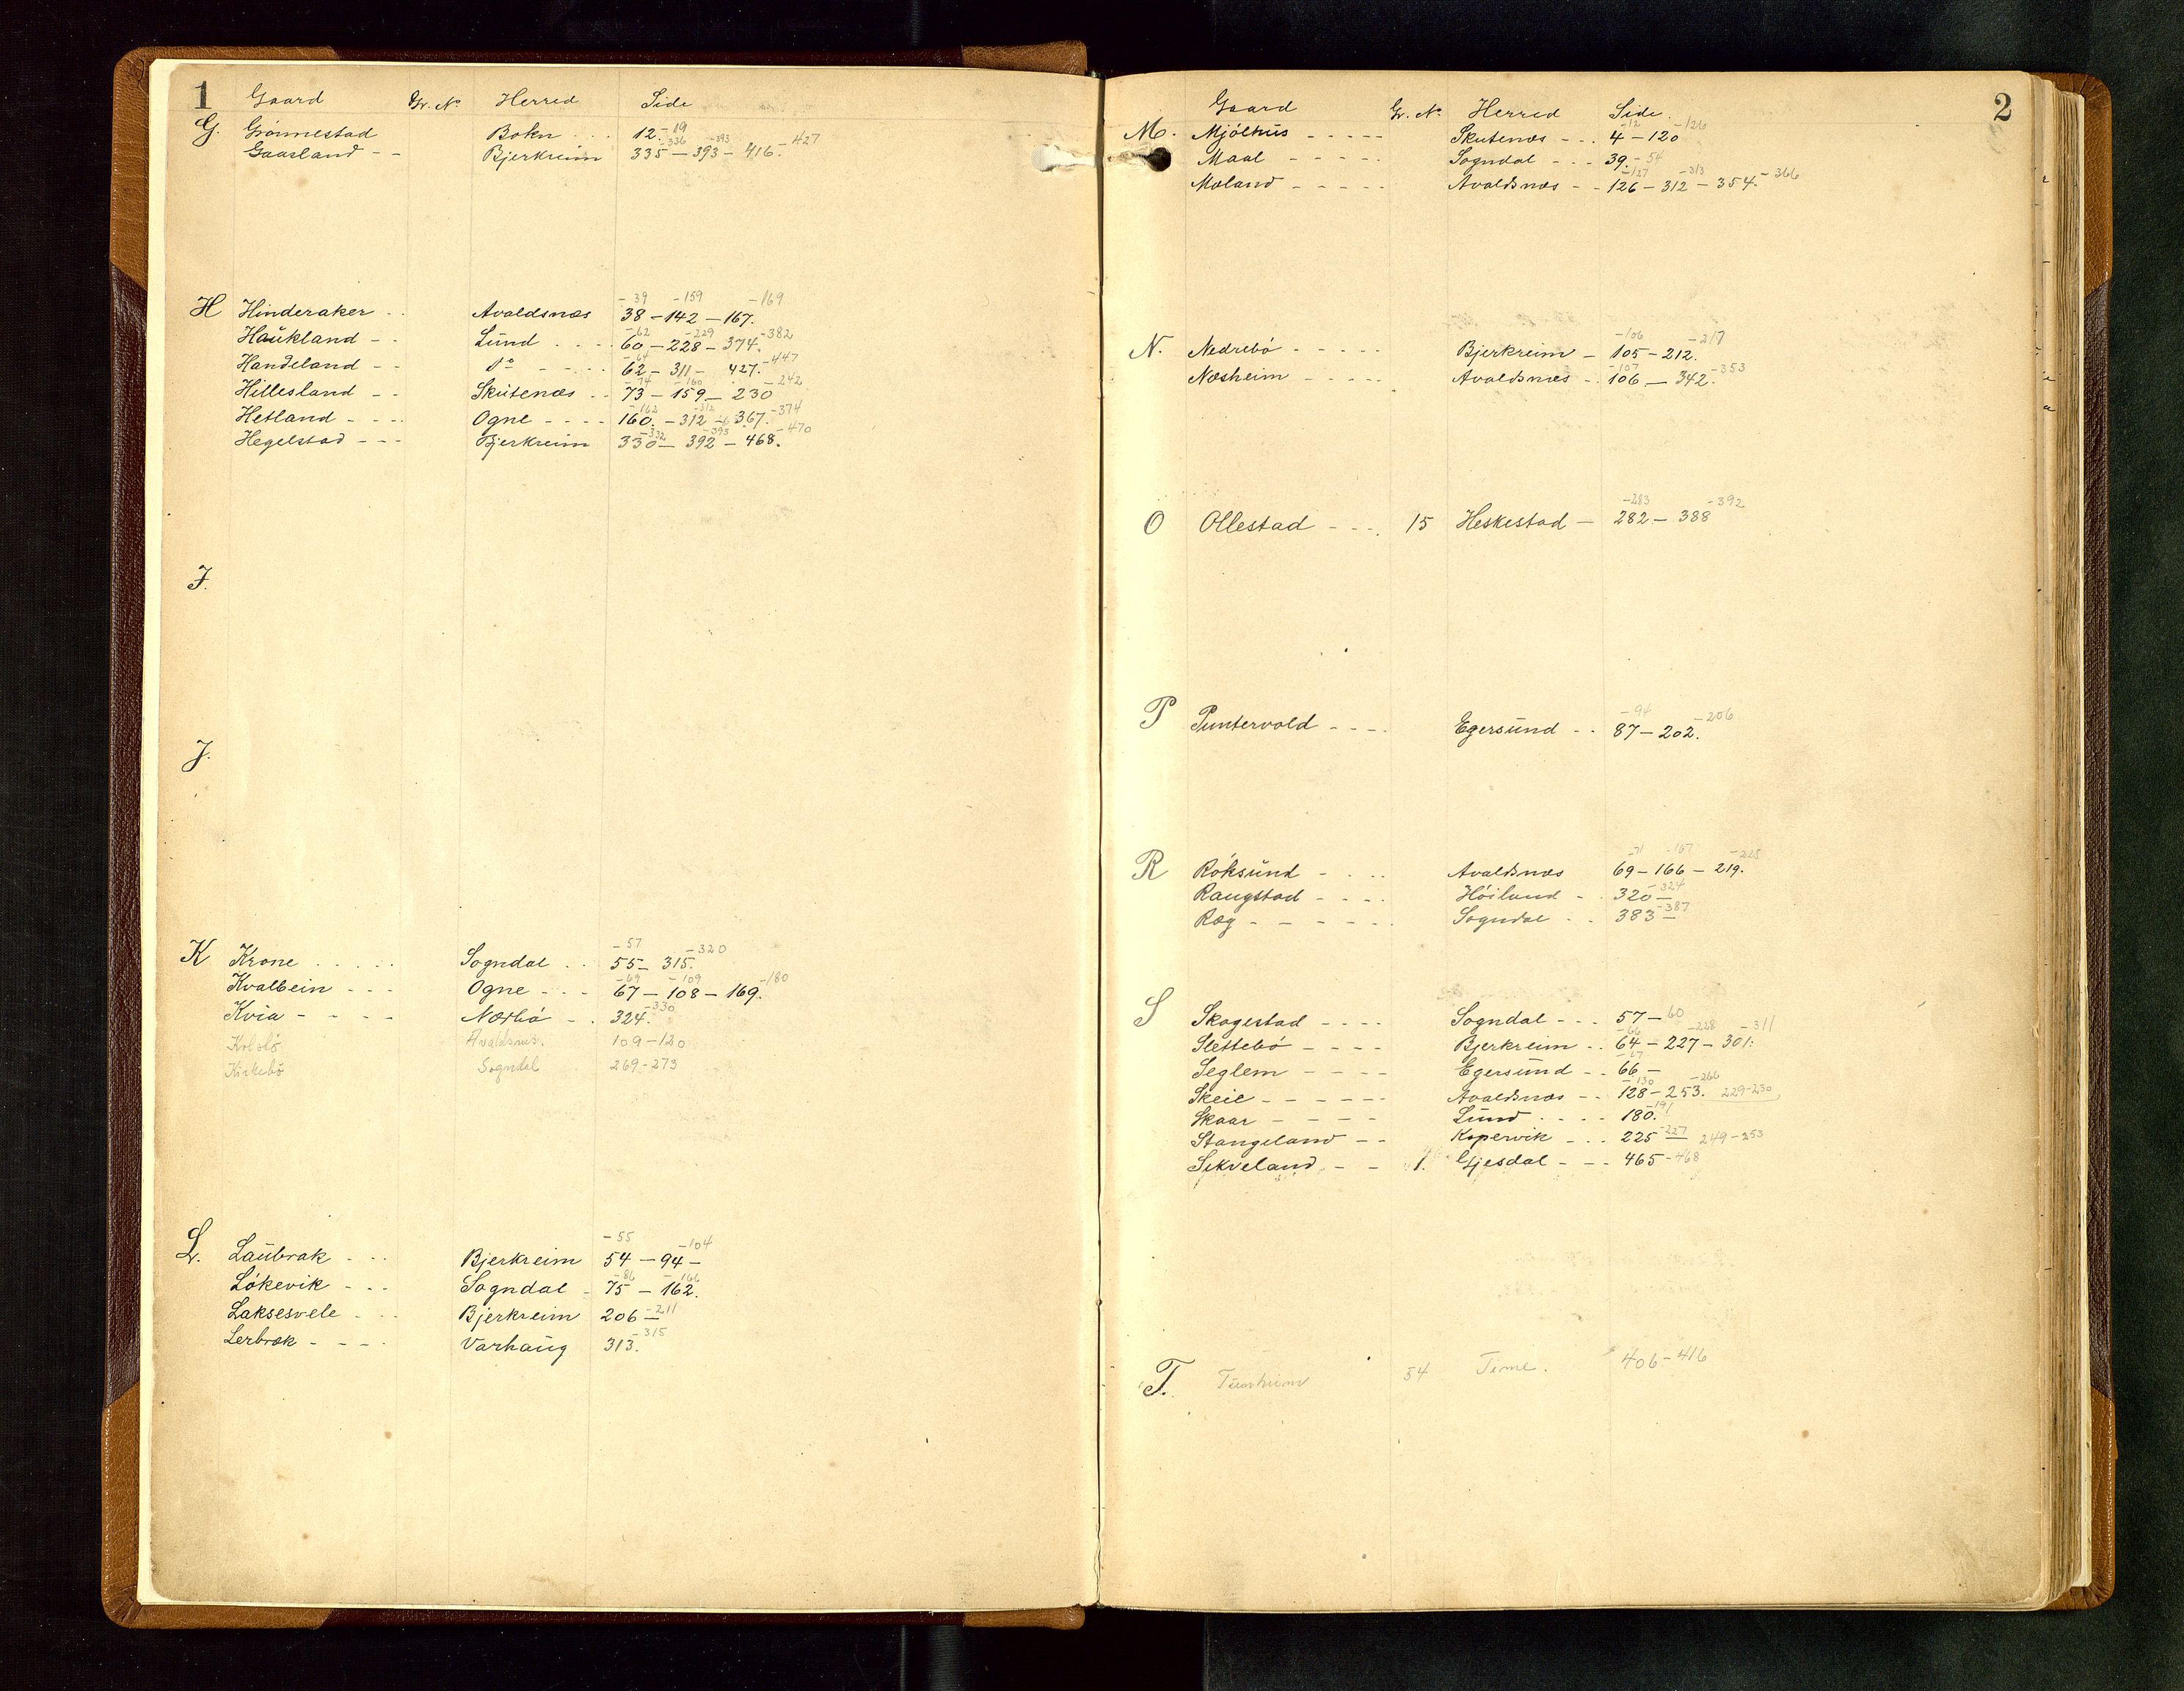 1 Gaard Gr. No Herred Side
G. Grönnestad Bokn 12.-19
Gaasland Bjerkreim 335-336 - 393-393 - 416.-427
H Hinderaker Avaldsnæs 38-39 - 142-159 - 167.-169
Haukland Lund 60-62 - 228-229 - 374.-382
Handeland Do 62-64 - 311 - 427.-447
Hillesland Skutenæs 73-74 - 159-160 - 230-242
Hetland Ogne 160.-162 - 312-312 - 367.-374
Hegelstad Bjerkreim 330-332 - 392-393 - 468.-470
I.
J.
K Krone Sogndal 55-57 - 315.-320
Kvalbein Ogne 67-69 - 108-109 - 169.-180
Kvia Nærbö 324.-330
Avaldsnæs. 109-120
Kirkebö Sogndal 269-273
L. Laubrak Bjerkreim 54-55 - 94-104
Lökevik Sogndal 75-86 - 162.-166
Laksesvele Bjerkreim 206-211
Lerbræk Varhaug 313.-315
2
Gaard Gr. No Herred Side
M. Mjölhus Skutenæs 4-12 - 120-126
Maal Sogndal 39.-54
Mæland Avaldsnæs 126-127 - 312-313 - 354.-366
N. Nedrebö Bjerkreim 105-106 - 212.-217
Næsheim Avaldsnæs 106-107 - 342.-353
O Ollestad 15 Heskestad 282-283 - 388-392
P Puntervold Egersund 87-94 - 202.-206
R Röksund Avaldsnæs 69-71 - 166-167 - 219.-225
Raugstad Höiland 320-324
Ræg Sogndal 383-387
S Skogestad Sogndal 57-60
Slettebö Bjerkreim 64-66 - 227-228 - 301.-311
Seglem Egersund 66-67
Skeie Avaldsnæs 128-130 - 253.-266 229-230
Skaar Lund 180.-191
Stangeland Kopervik 225-227 249-253
Sikveland 7. Gjesdal 465-468
T. Tunheim 54 Time. 406-416